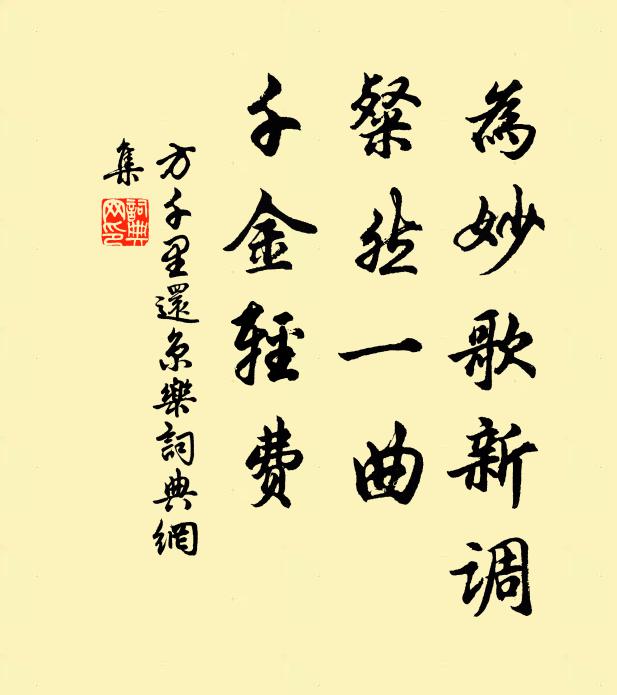 為妙歌新調
粲然一曲
千金輕費
方千里還京樂詞典網
集
詞典網印